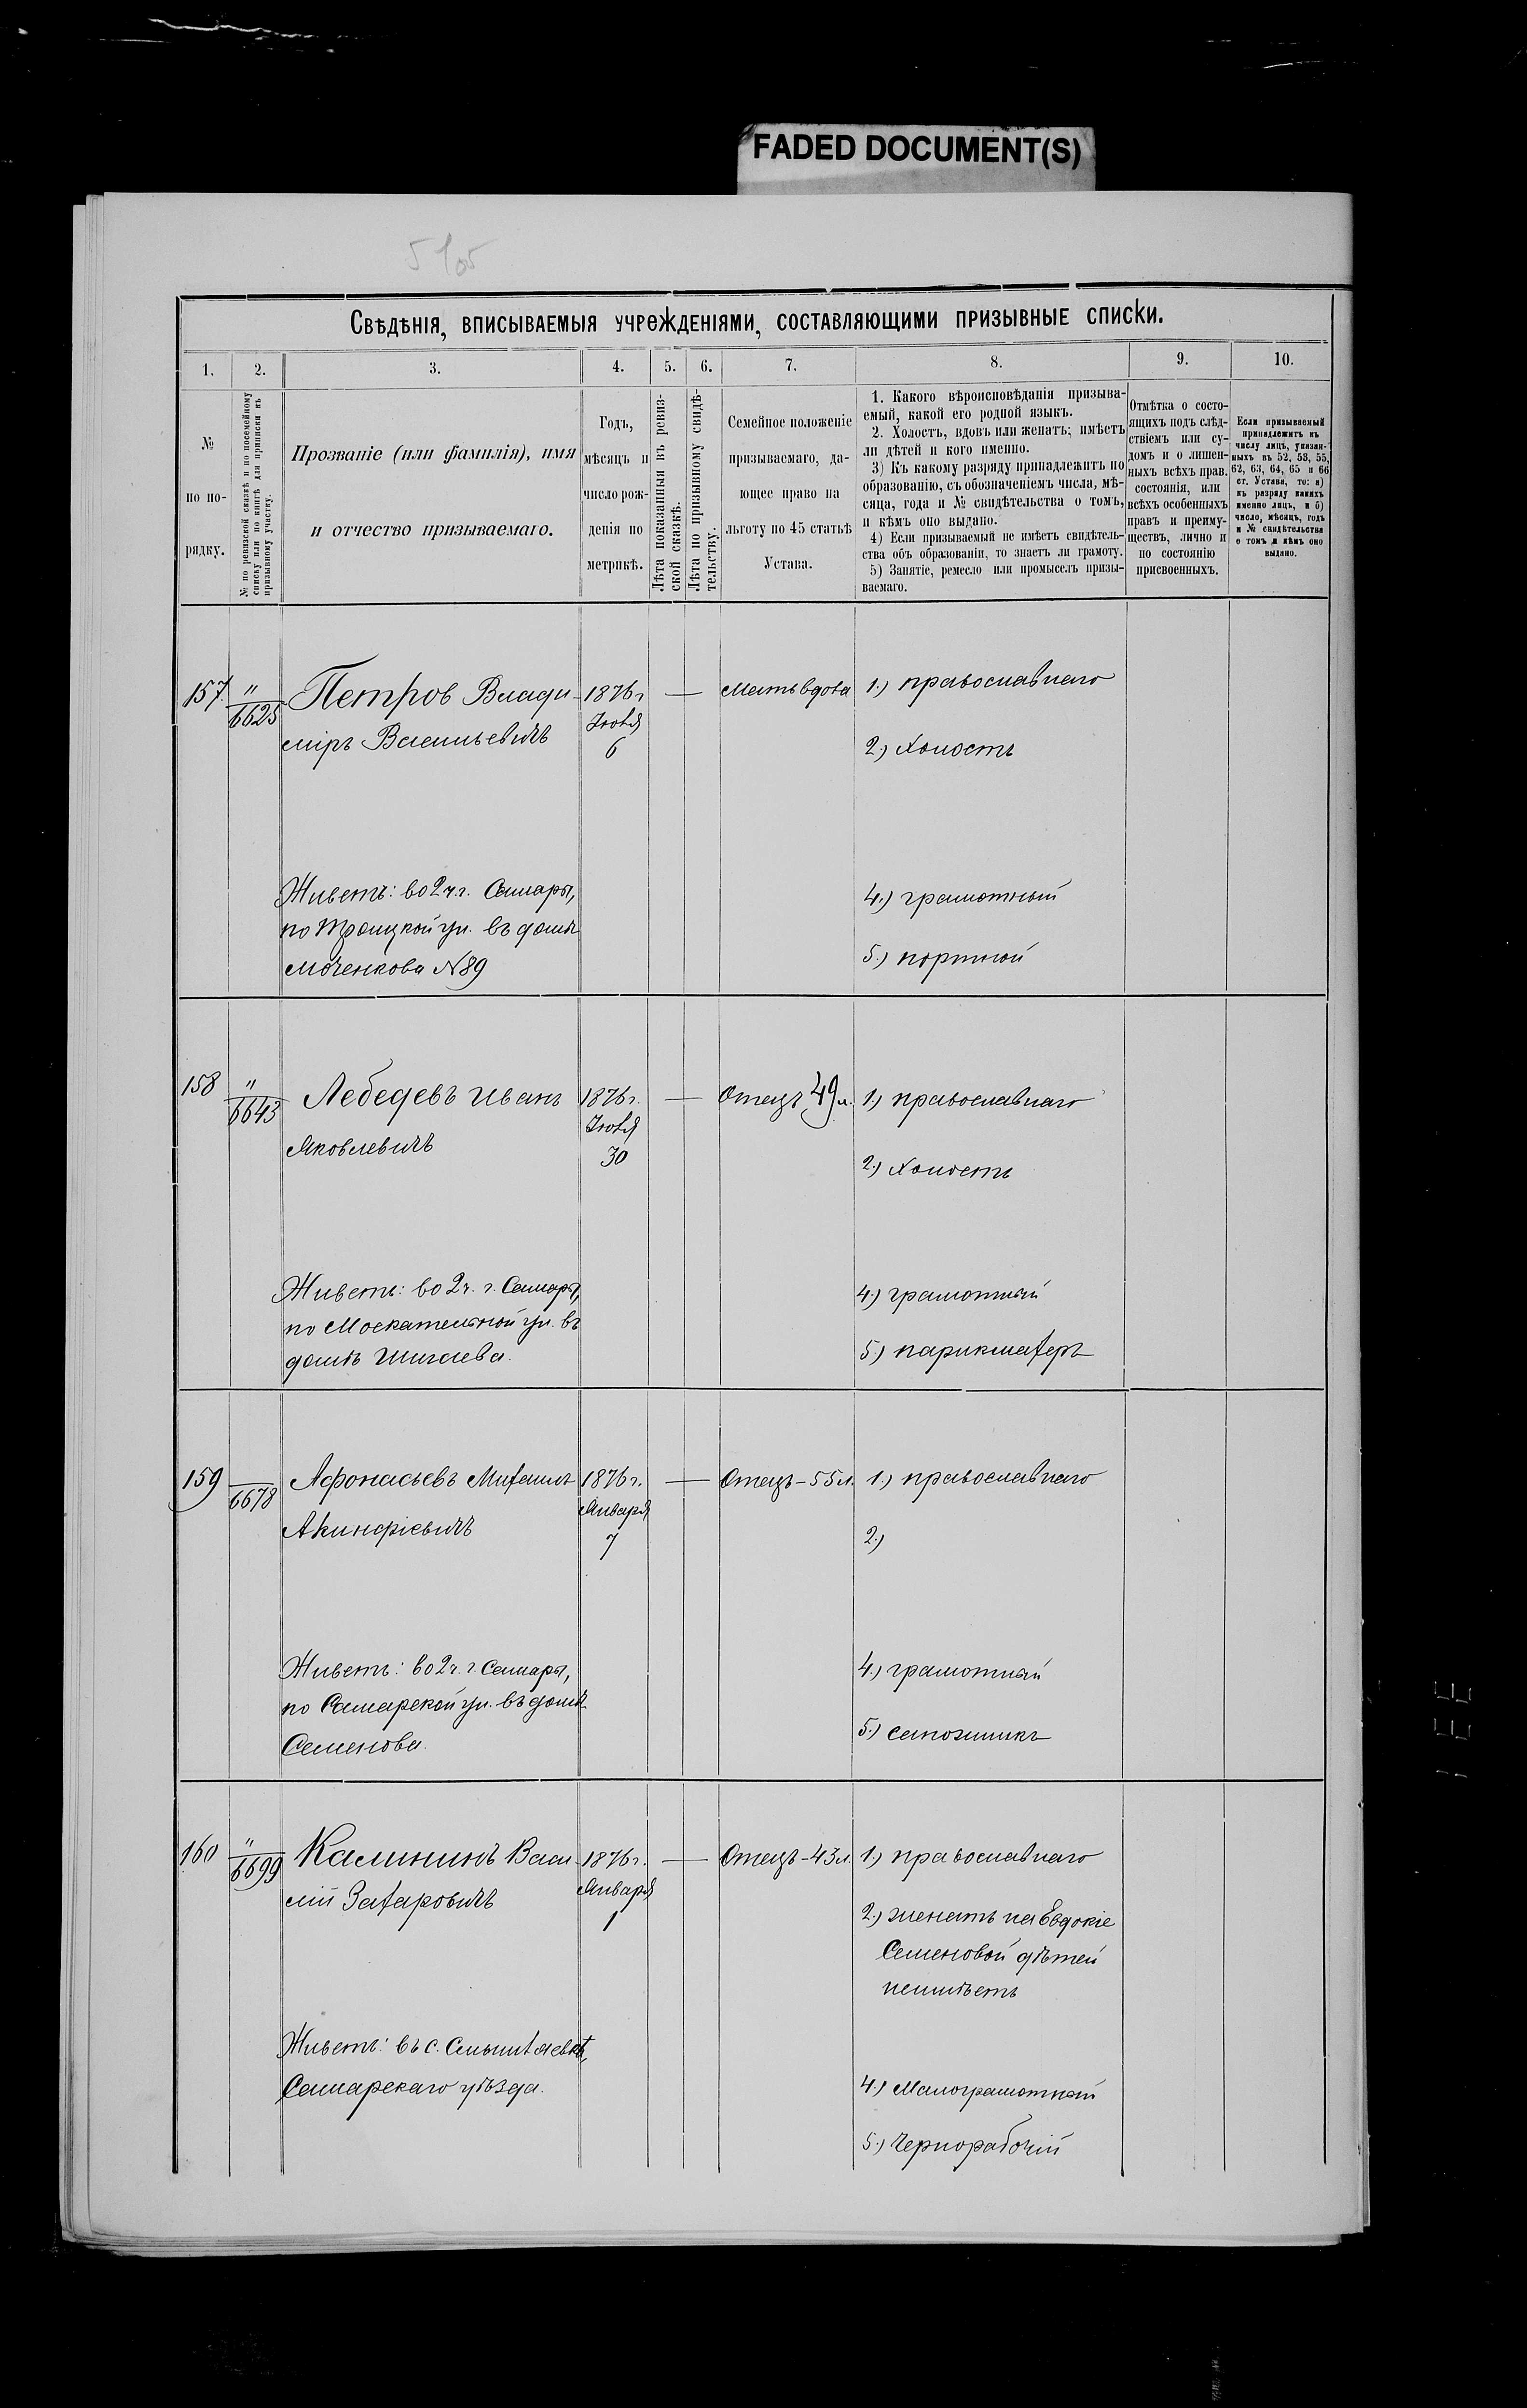 FADED DOCUMENT(S)
Свѣдѣнія, вписываемыя учрежденіями, составляющими призывные списки.
1.
2.
3.
4.
5.
6.
7.
8.
9.
10.
№
по по-
рядку.
№ по ревизской сказкѣ и по посемейному
списку или по книгѣ для приписки къ
призывному участку.
Прозваніе (или фамилія), имя
и отчество призываемаго.
Годъ,
мѣсяцъ и
число рож-
денія по
метрикѣ.
Лѣта показанныя въ ревиз-
ской сказкѣ.
Лѣта по призывному свидѣ-
тельству.
Семейное положеніе
призываемаго, да-
ющее право на
льготу по 45 статьѣ
Устава.
1. Какого вѣроисповѣданія призыва-
емый, какой его родной языкъ.
2. Холостъ, вдовъ или женатъ; имѣетъ
ли дѣтей и кого именно.
3) Къ какому разряду принадлежитъ по
образованію, съ обозначеніемъ числа, мѣ-
сяца, года и № свидѣтельства о томъ,
и кѣмъ оно выдано.
4) Если призываемый не имѣетъ свидѣтель-
ства объ образованіи, то знаетъ ли грамоту.
5) Занятіе, ремесло или промыселъ призы-
ваемаго.
Отмѣтка о состо-
ящихъ подъ слѣд-
ствіемъ или су-
домъ и о лишен-
ныхъ всѣхъ прав.
состоянія, или
всѣхъ особенныхъ
правъ и преиму-
ществъ, лично и
по состоянію
присвоенныхъ.
Если призываемый
принадлежитъ къ
числу лицъ, указан-
ныхъ въ 52, 53, 55,
62, 63, 64, 65 и 66
ст. Устава, то: а)
къ разряду какихъ
именно лицъ, и б)
число, мѣсяцъ, годъ
и № свидѣтельства
о томъ и кѣмъ оно
выдано.
157.
"
6625
Петров Влади-
міръ Васильевичъ
1876 г
Іюля
6
Мать вдова
1.) православнаго
2.) Холостъ
Живетъ: во 2 ч. г. Самары,
по Троицкой ул. въ домѣ
Моченкова №89
4.) грамотный
5.) портной
158
"
6643
Лебедевъ Иванъ
Яковлевичъ
1876 г.
Іюля
30
Отецъ 49 л.
1.) православнаго
2.) Холостъ
Живетъ: во 2 ч. г. Самары,
по Москательной ул. въ
домѣ Шигаева.
4.) грамотный
5.) парикмахеръ
159
6678
Афонасьевъ Михаилъ
Акинфіевичъ
1876 г.
Января
7
Отецъ-55 л.
1.) православнаго
2.)
Живетъ: во 2 ч. г. Самары,
по Самарской ул. въ домѣ
Семенова.
4.) грамотный
5.) сапожникъ
160
"
6699
Калининъ Васи-
лій Захаровичъ
1876 г.
Января
1
Отецъ-43 л.
1.) православнаго
2.) женатъ на Евдокіе
Семеновой дѣтей
неимѣетъ
Живетъ: въ с. Смышляевкѣ,
Самарскаго уѣзда.
4.) Малограмотный
5.) Чернорабочій